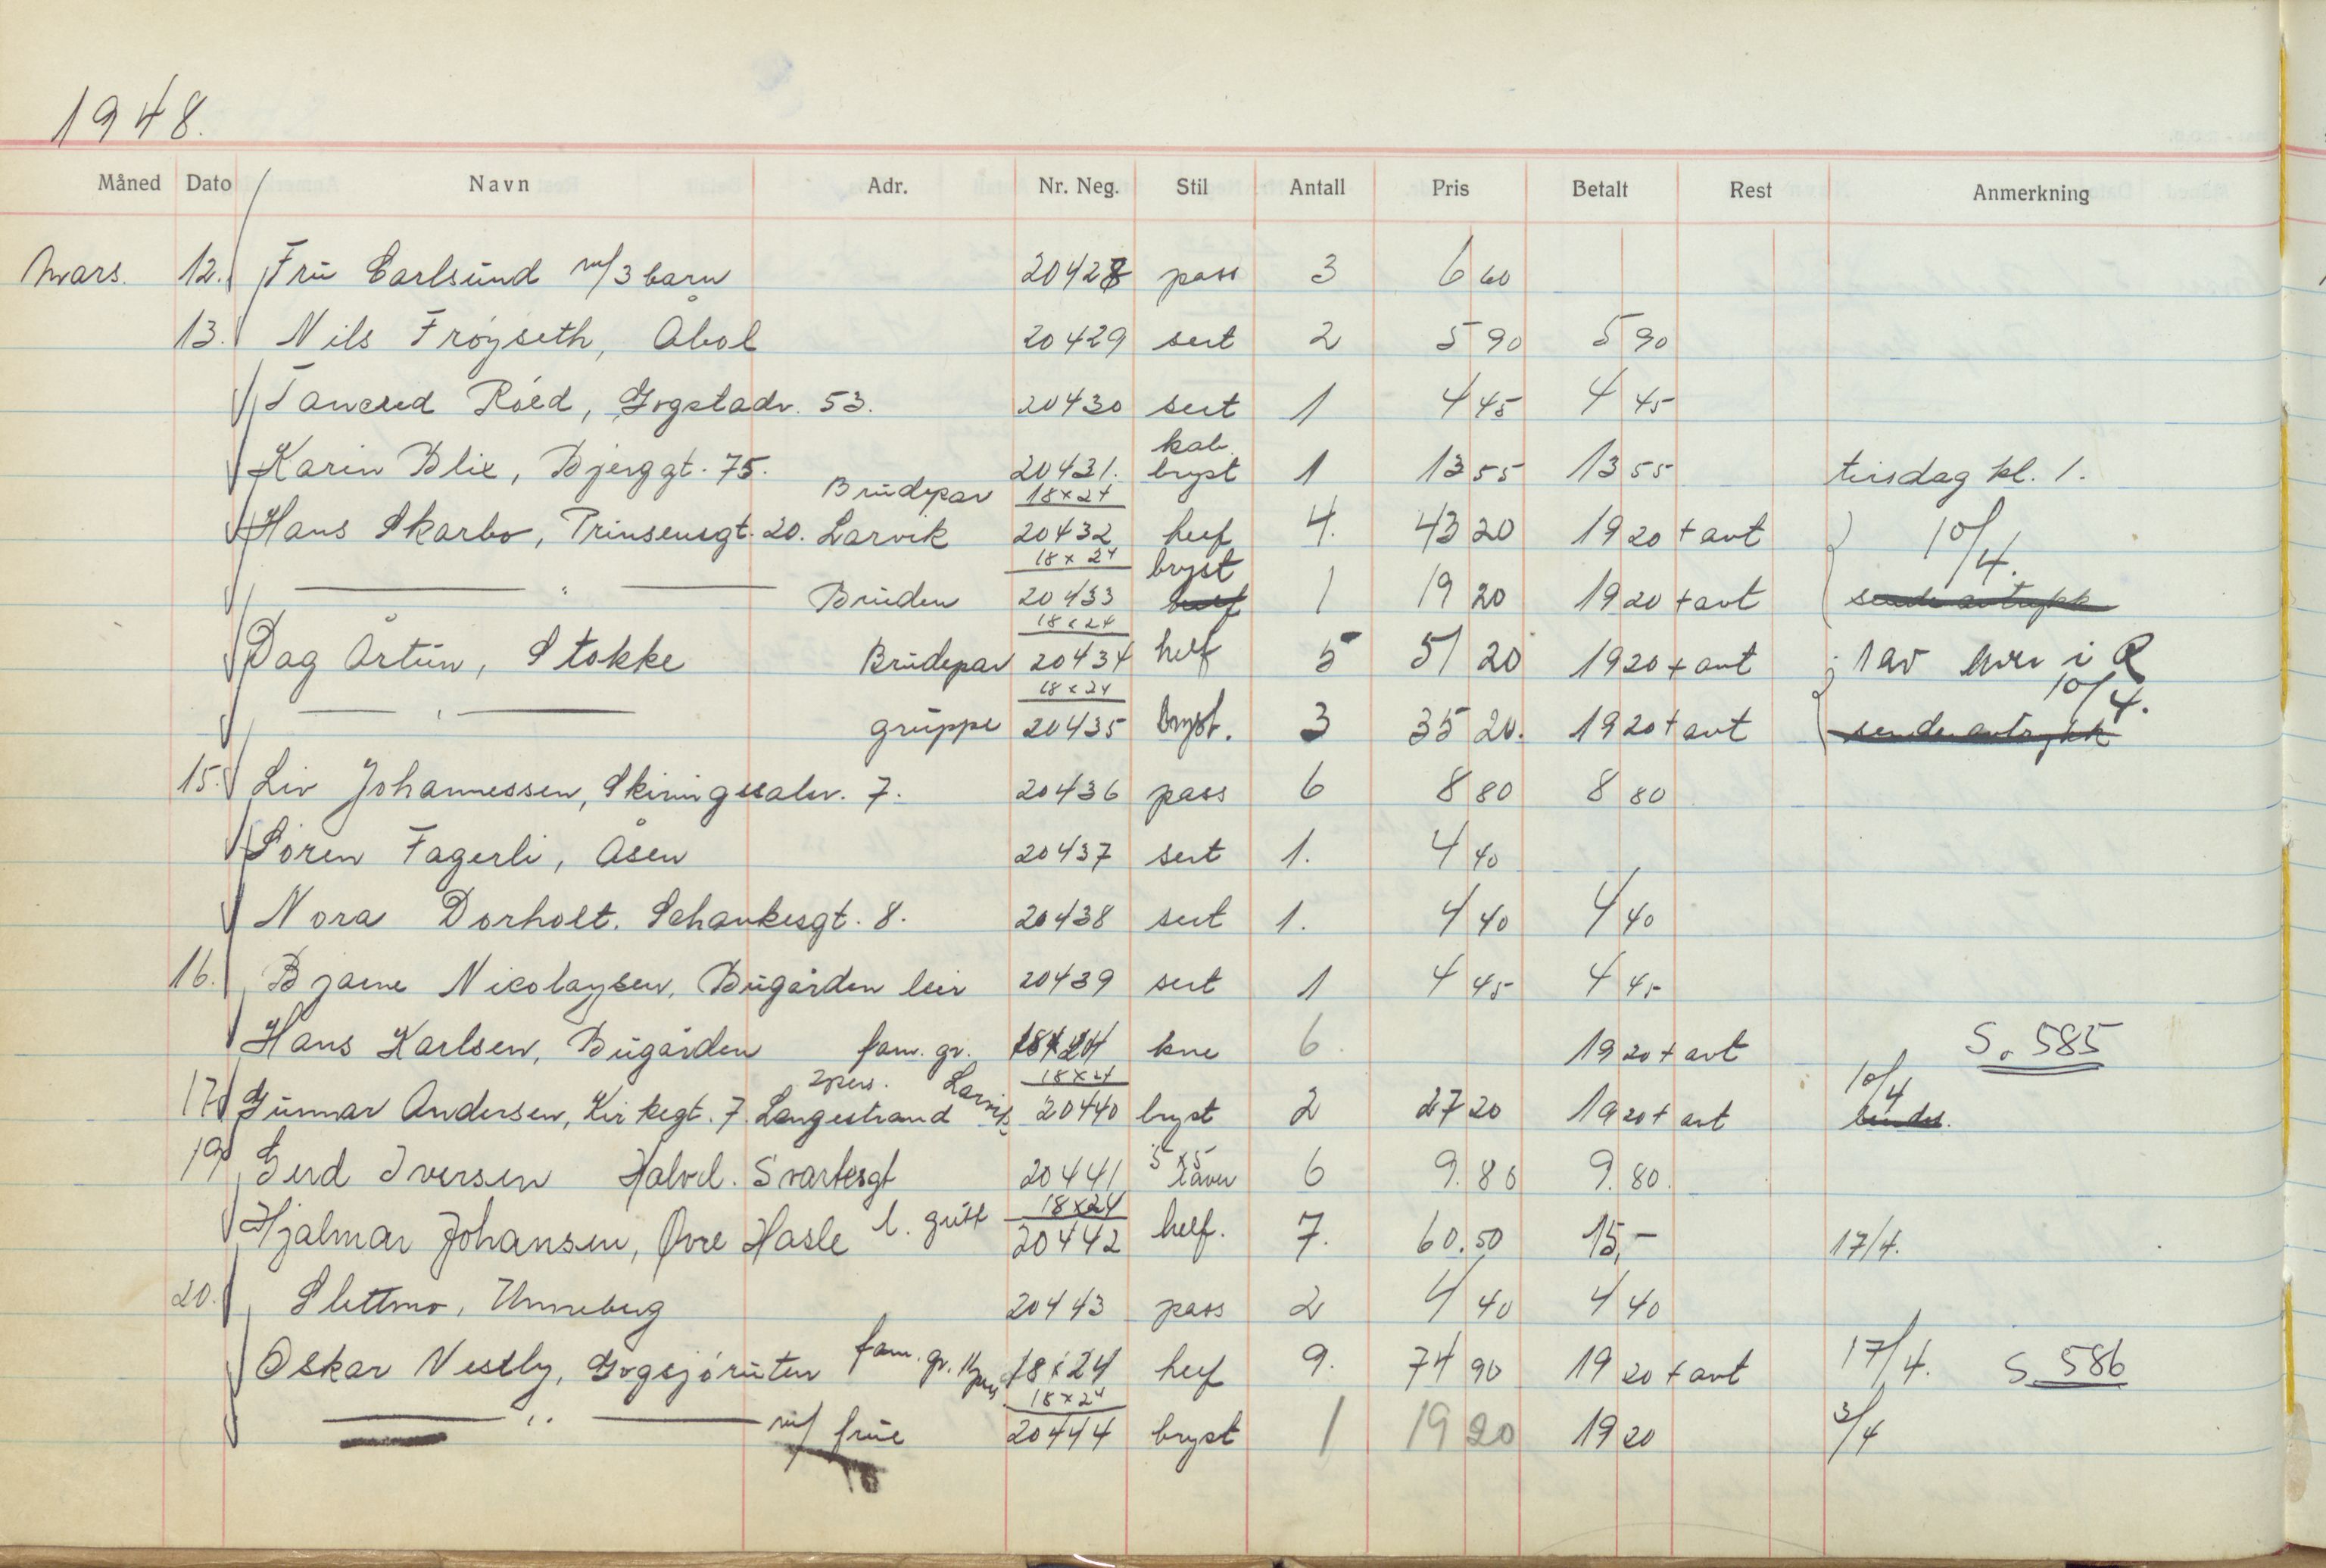 1948.
Måned Dato Navn Adr. Nr. Neg. Stil Antall Pris Betalt Rest Anmerkning
Mars. 12. Frū Carlsūnd m/3 barn 20428 pass 3 6 60
13. Nils Frøyseth, Åbol 20429 sert 2 5 90 5 90
Tancred Röed, Gogstadv. 53. 20430 sert 1 4 45 4 45
Karin Blix, Bjerggt. 75. 20431. kab. bryst 1 13 55 13 55 tirsdag kl. 1.
Hans Skarbo, Prinsensgt. 20. Larvik Brūdepar 18x24 20432 helf 4. 43 20 19 20 + avt 10/4.
— " — Brūden 18x24 20433 bryst helf 1 19 20 19 20 + avt sende avtrykk
Dag Årtūn, Stokke Brūdepar 18x24 20434 helf 5 51 20 19 20 + avt 1 av hver i R
— " — grūppe 18x24 20435 bryst. 3 35 20. 19 20 + avt 10/4. sende avtrykk
15. Liv Johannessen, Skiringssalsv. 7. 20436 pass 6 8 80 8 80
Sören Fagerli, Åsen 20437 sert 1. 4 40
Nora Dorholt. Schankesgt. 8. 20438 sert 1. 4 40 4 40
16. Bjarne Nicolaysen, Būgården leir 20439 sert 1 4 45 4 45
Hans Karlsen, Būgården fam. gr. 18x24 kne 6. 19 20 + avt S. 585
17. Gūnnar Andersen, Kirkegt. 7. Langestrand Larvik 2 pers. 18x24 20440 bryst 2 27 20 19 20 + avt 10/4 sendes.
19. Gerd Iversen Halvd. Svartesgt 20441 5x5 6 9. 80 9. 80.
Hjalmar Johansen, Øvre Hasle l. gūtt 18x24 20442 helf. 7. 60.50 15,- 17/4.
20. Slettmo, Unneberg 20443 pass 2 4 40 4 40
Oskar Vestly, Gogsjörūten fam. gr. 11 pers 18x24 helf 9. 74 90 19 20 + avt 17/4. S 586
— " — m/ frūe 18x24 20444 bryst 1 19 20 19 20 3/4